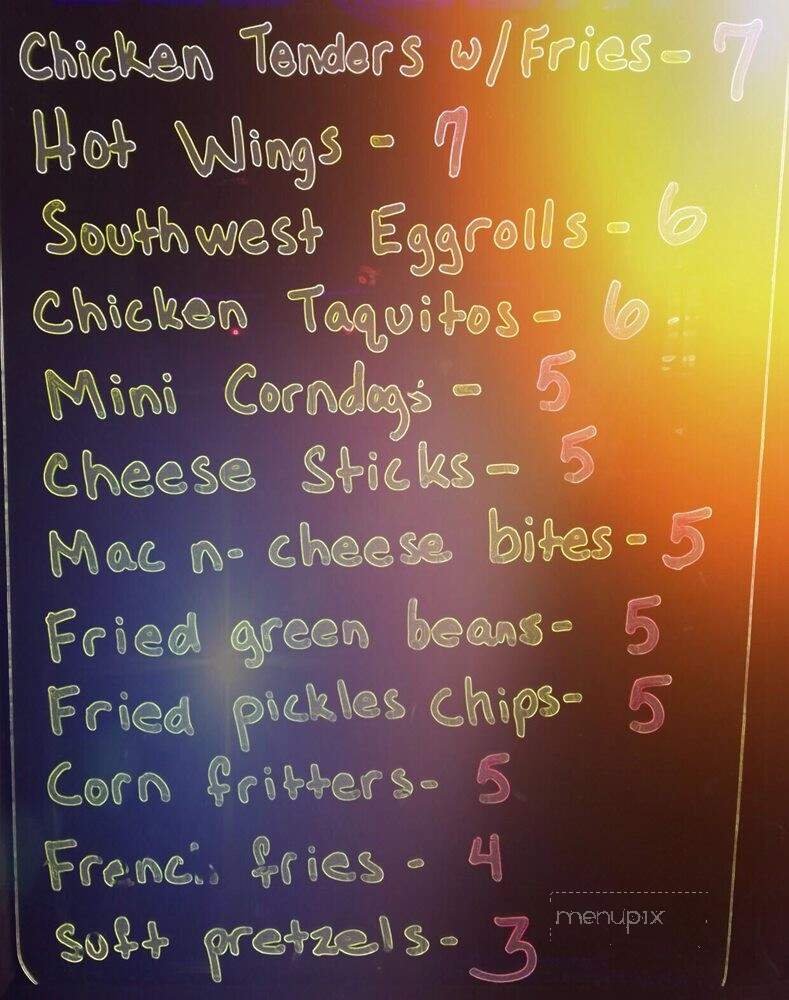 Chicken Tenders w/Fries- 7
Hot Wings - 7
Southwest Eggrolls - 6
Chicken Taquitos - 6
Mini Corndogs - 5
Cheese Sticks - 5
Mac n- cheese bites - 5
Fried green beans- 5
Fried pickles chips- 5
Corn fritters- 5
fries - 4
Soft pretzels- 3
menupix